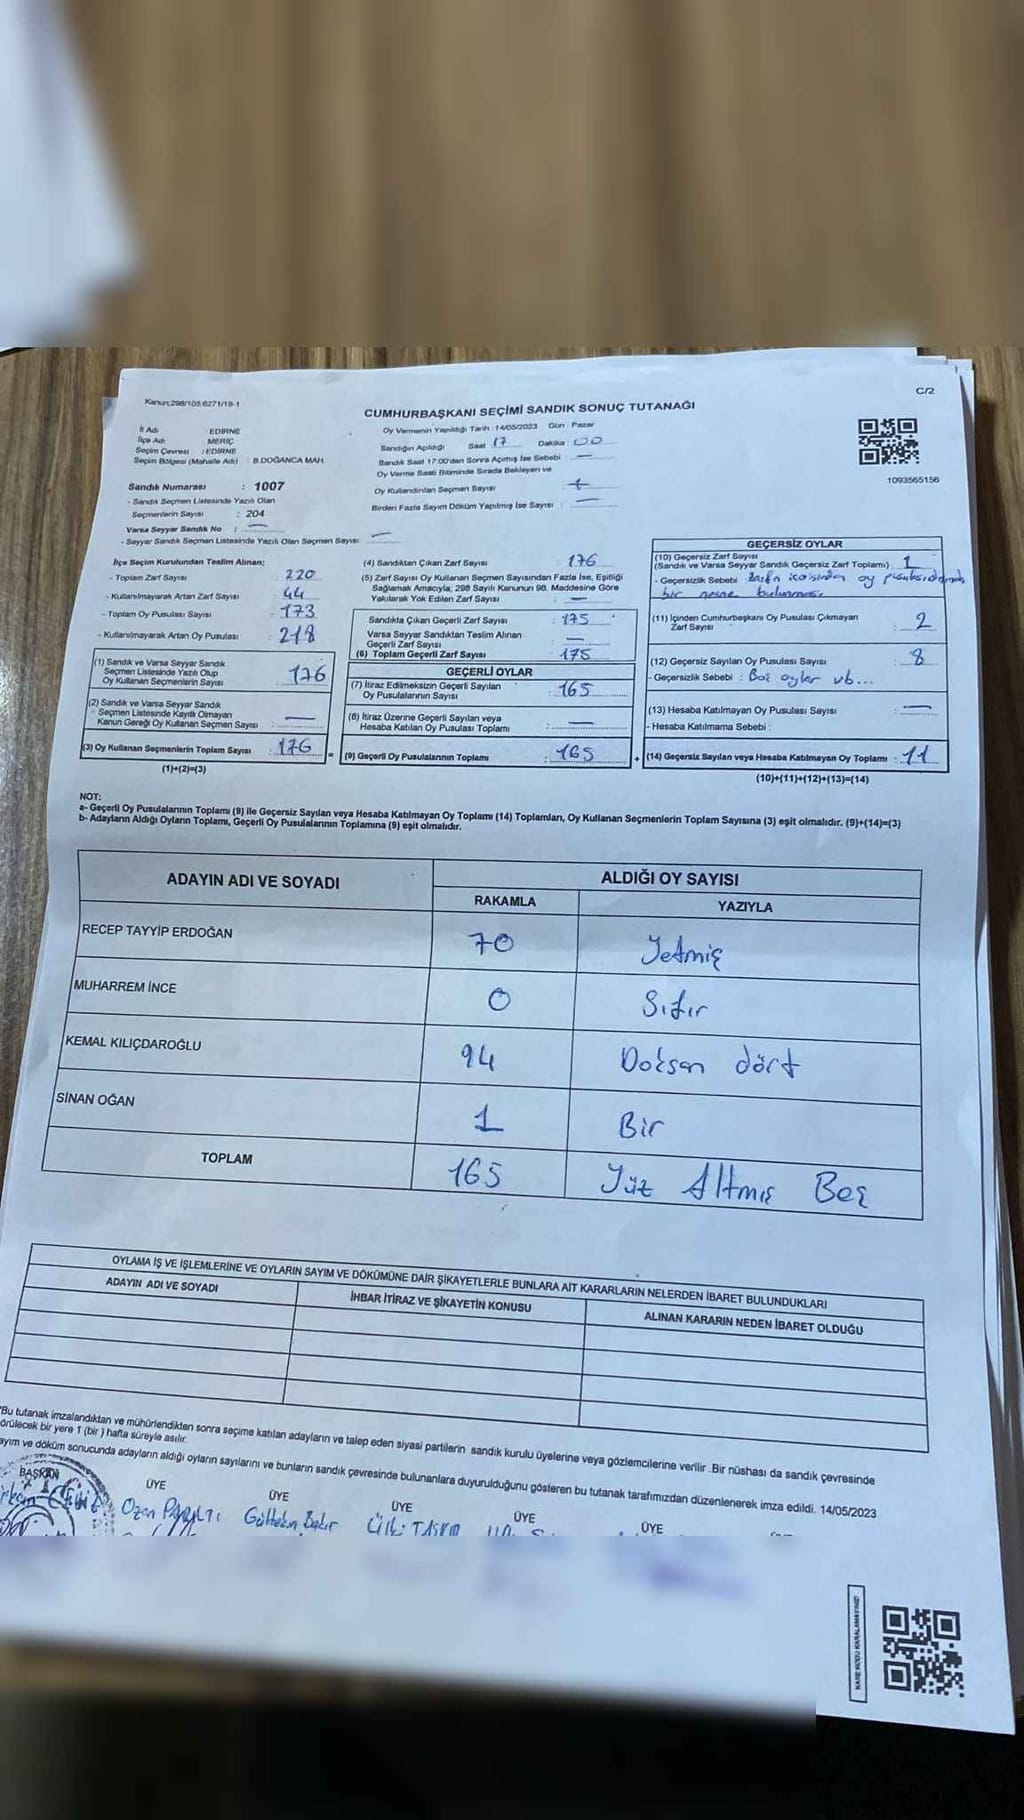 C/2
Kanun;298/105,6271/19-1
CUMHURBAŞKANI SEÇİMİ SANDIK SONUÇ TUTANAĞI
İl Adı : EDİRNE
İlçe Adı : MERİÇ
Seçim Çevresi : EDİRNE
Seçim Bölgesi (Mahalle Adı) : B.DOĞANCA MAH.
Oy Vermenin Yapıldığı Tarih :14/05/2023 Gün : Pazar
Sandığın Açıldığı Saat 17 Dakika 00
Sandık Saat 17:00'den Sonra Açımış İse Sebebi : —
Oy Verme Saati Bitiminde Sırada Bekleyen ve
Oy Kullandırılan Seçmen Sayısı
Birden Fazla Sayım Döküm Yapılmış İse Sayısı : —
1093565156
Sandık Numarası : 1007
- Sandık Seçmen Listesinde Yazılı Olan
Seçmenlerin Sayısı : 204
Varsa Seyyar Sandık No : —
- Seyyar Sandık Seçmen Listesinde Yazılı Olan Seçmen Sayısı: —
İlçe Seçim Kurulundan Teslim Alınan;
- Toplam Zarf Sayısı : 220
- Kullanılmayarak Artan Zarf Sayısı : 44
- Toplam Oy Pusulası Sayısı : 173
- Kullanılmayarak Artan Oy Pusulası : 218
(1) Sandık ve Varsa Seyyar Sandık
Seçmen Listesinde Yazılı Olup
Oy Kullanan Seçmenlerin Sayısı : 176
(2) Sandık ve Varsa Seyyar Sandık
Seçmen Listesinde Kayıtlı Olmayan
Kanun Gereği Oy Kullanan Seçmen Sayısı : —
(3) Oy Kullanan Seçmenlerin Toplam Sayısı : 176
(1)+(2)=(3)
(4) Sandıktan Çıkan Zarf Sayısı : 176
(5) Zarf Sayısı Oy Kullanan Seçmen Sayısından Fazla İse, Eşitliği
Sağlamak Amacıyla; 298 Sayılı Kanunun 98. Maddesine Göre
Yakılarak Yok Edilen Zarf Sayısı : —
Sandıkta Çıkan Geçerli Zarf Sayısı : 175
Varsa Seyyar Sandıktan Teslim Alınan
Geçerli Zarf Sayısı : —
(6) Toplam Geçerli Zarf Sayısı : 175
GEÇERLİ OYLAR
(7) İtiraz Edilmeksizin Geçerli Sayılan
Oy Pusulalarının Sayısı : 165
(8) İtiraz Üzerine Geçerli Sayılan veya
Hesaba Katılan Oy Pusulası Toplamı : —
(9) Geçerli Oy Pusulalarının Toplamı : 165
GEÇERSİZ OYLAR
(10) Geçersiz Zarf Sayısı
(Sandık ve Varsa Seyyar Sandık Geçersiz Zarf Toplamı) : 1
- Geçersizlik Sebebi : Zarfın içerisinden oy pusulası dışında
bir nesne bulunması.
(11) İçinden Cumhurbaşkanı Oy Pusulası Çıkmayan
Zarf Sayısı : 2
(12) Geçersiz Sayılan Oy Pusulası Sayısı : 8
- Geçersizlik Sebebi : Boş oylar vb...
(13) Hesaba Katılmayan Oy Pusulası Sayısı : —
- Hesaba Katılmama Sebebi :
(14) Geçersiz Sayılan veya Hesaba Katılmayan Oy Toplamı : 11
(10)+(11)+(12)+(13)=(14)
NOT:
a- Geçerli Oy Pusulalarının Toplamı (9) ile Geçersiz Sayılan veya Hesaba Katılmayan Oy Toplamı (14) Toplamları, Oy Kullanan Seçmenlerin Toplam Sayısına (3) eşit olmalıdır. (9)+(14)=(3)
b- Adayların Aldığı Oyların Toplamı, Geçerli Oy Pusulalarının Toplamına (9) eşit olmalıdır.
ADAYIN ADI VE SOYADI ALDIĞI OY SAYISI
RAKAMLA YAZIYLA
RECEP TAYYİP ERDOĞAN 70 Yetmiş
MUHARREM İNCE 0 Sıfır
KEMAL KILIÇDAROĞLU 94 Doksan dört
SİNAN OĞAN 1 Bir
TOPLAM 165 Yüz Altmış Beş
OYLAMA İŞ VE İŞLEMLERİNE VE OYLARIN SAYIM VE DÖKÜMÜNE DAİR ŞİKAYETLERLE BUNLARA AİT KARARLARIN NELERDEN İBARET BULUNDUKLARI
ADAYIN ADI VE SOYADI İHBAR İTİRAZ VE ŞİKAYETİN KONUSU ALINAN KARARIN NEDEN İBARET OLDUĞU
*Bu tutanak imzalandıktan ve mühürlendikten sonra seçime katılan adayların ve talep eden siyasi partilerin sandık kurulu üyelerine veya gözlemcilerine verilir .Bir nüshası da sandık çevresinde
görülecek bir yere 1 (bir ) hafta süreyle asılır.
Sayım ve döküm sonucunda adayların aldığı oyların sayılarını ve bunların sandık çevresinde bulunanlara duyurulduğunu gösteren bu tutanak tarafımızdan düzenlenerek imza edildi. 14/05/2023
BAŞKAN ÜYE ÜYE ÜYE ÜYE ÜYE
Ozan Gültekin Bakır
KARE KODU KARALAMAYINIZ!